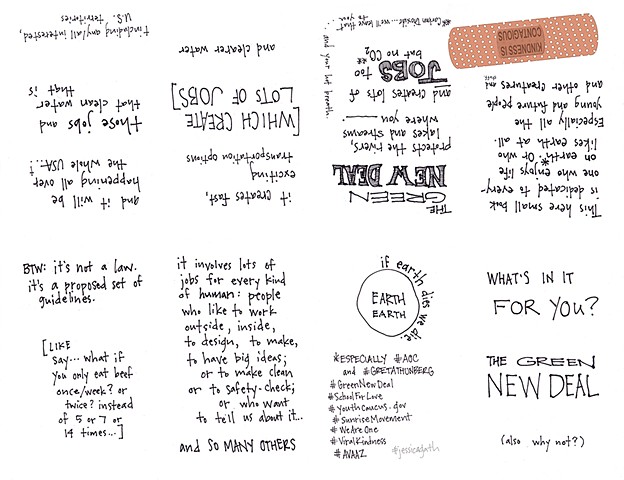 and it will be
happening all over
the whole USA†!
those jobs and
that clean water
that is
†including any/all interested,
U.S. territories
it creates fast,
exciting
transportation options
[WHICH CREATE
LOTS OF JOBS]
and clearer water
THE
GREEN
NEW DEAL
protects the rivers,
lakes and streams
where you ____
and creates lots of
JOBS too
but no CO2**
**Carbon Dioxide... we'll leave that
to you...
...and your hot breath.
This here small book
is dedicated to every-
one who enjoys life
on earth.* Or who
likes earth at all.
Especially the all
young and future people
and other creatures
KINDNESS IS
CONTAGIOUS
BTW: it's not a law.
it's a proposed set of
guidelines.
[LIKE
say... what if
you only eat beef
once/week? or
twice? instead
of 5 or 7 or
14 times...]
it involves lots of
jobs for every kind
of human: people
who like to work
outside, inside,
to design, to make,
to have big ideas;
or to make clean
or to safety-check;
or who want
to tell us about it...
and SO MANY OTHERS
if earth dies we die.
EARTH
EARTH
*ESPECIALLY #AOC
and #GRETATHUNBERG
#GreenNewDeal
#SchoolForLove
#youthcaucus.gov
#SunriseMovement
#WeAreOne
#ViralKindness
#AVAAZ
#jessicagath
WHAT'S IN IT
FOR YOU?
THE GREEN
NEW DEAL
(also why not?)